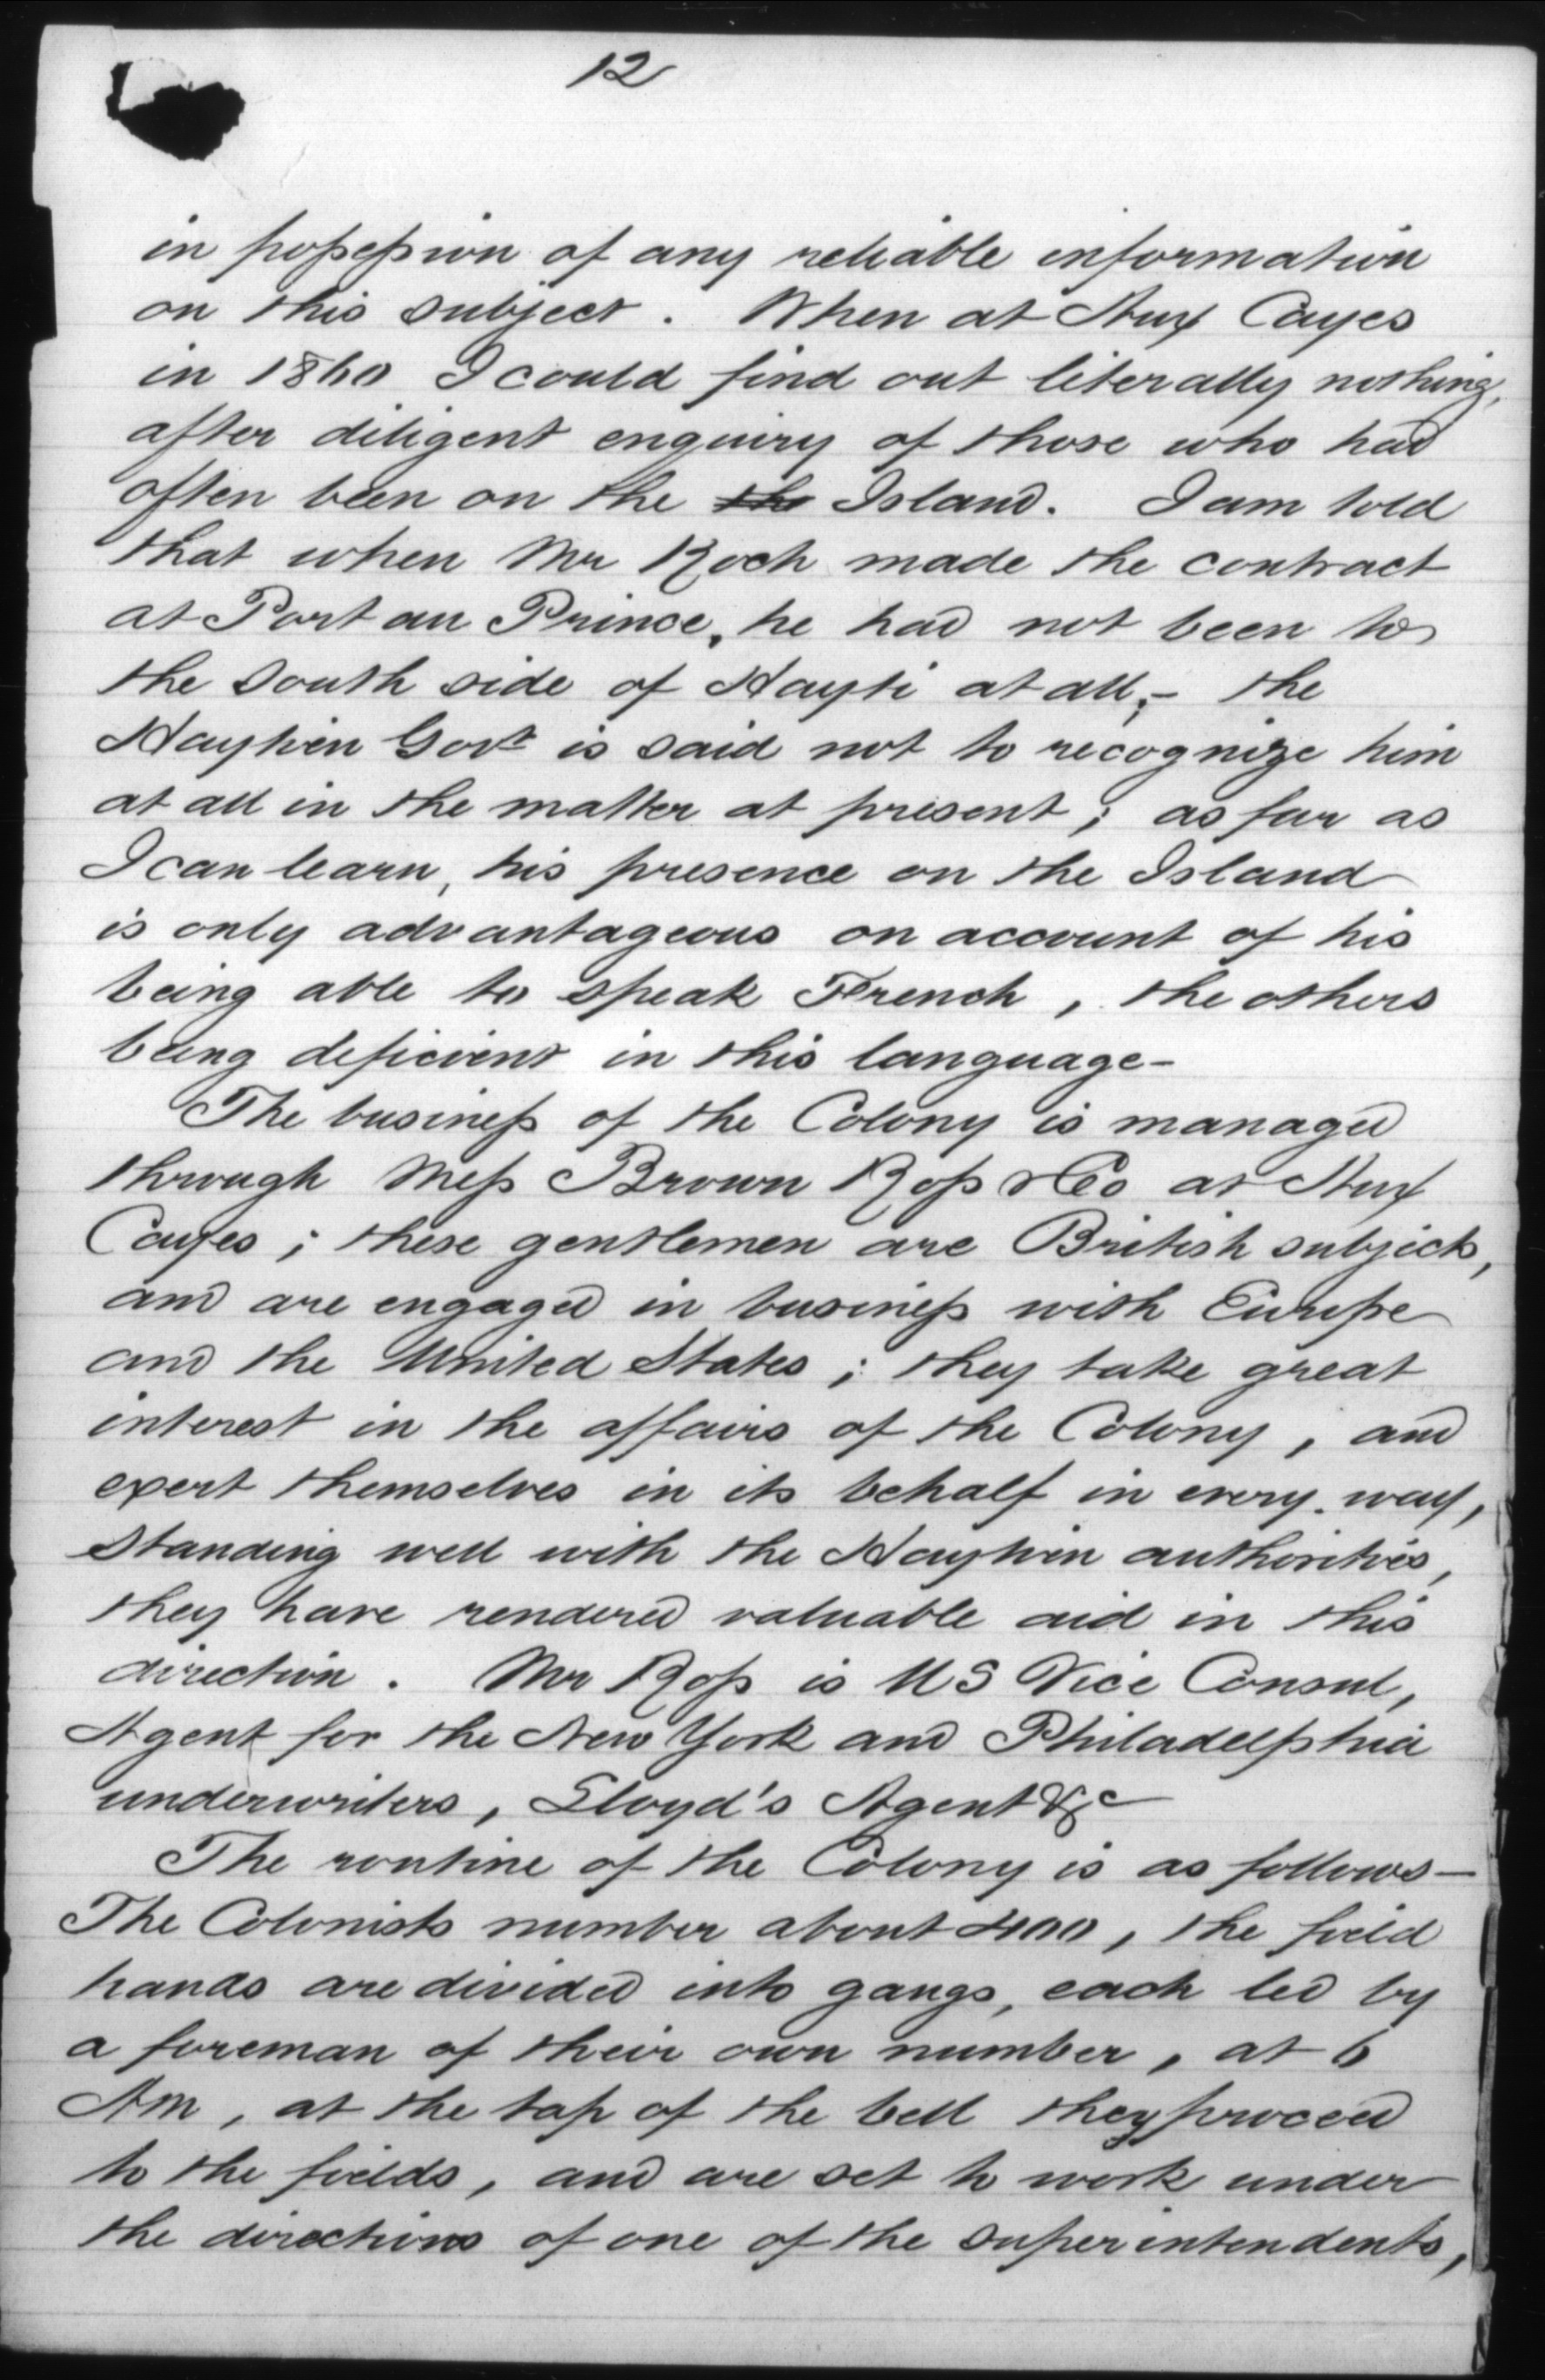 12
in possession of any reliable information
on this subject. When at Aux Cayes
in 1860 I could find out literally nothing,
after diligent enquiry of those who had
often been on the the Island. I am told
that when Mr Koch made the contract
at Port au Prince, he had not been to
the South side of Hayti at all;- the
Haytien Govt is said not to recognize him
at all in the matter at present; as far as
I can learn, his presence on the Island
is only advantageous on account of his
being able to speak French, the others
being deficient in this language-
The business of the Colony is managed
through Mess Brown Ross & Co at Aux
Cayes; these gentlemen are British subjects,
and are engaged in business with Europe
and the United States; they take great
interest in the affairs of the Colony, and
exert themselves in its behalf in every way,
standing well with the Haytien authorities,
they have rendered valuable aid in this
direction. Mr Ross is US Vice Consul,
Agent for the New York and Philadelphia
underwriters, Lloyd's Agent &c
The routine of the Colony is as follows-
The Colonists number about 400, the field
hands are divided into gangs, each led by
a foreman of their own number, at 6
AM, at the tap of the bell they proceed
to the fields, and are set to work under
the directions of one of the superintendents,